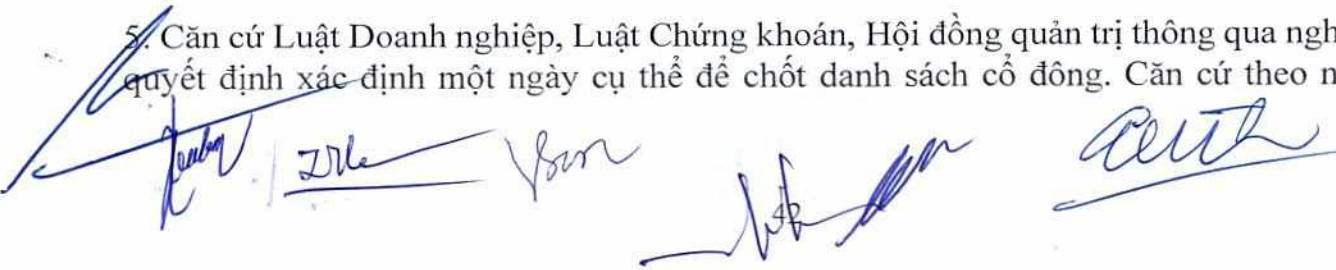 5. Căn cứ Luật Doanh nghiệp, Luật Chứng khoán, Hội đồng quản trị thông qua ngh
quyết định xác định một ngày cụ thể để chốt danh sách cổ đông. Căn cứ theo n
42